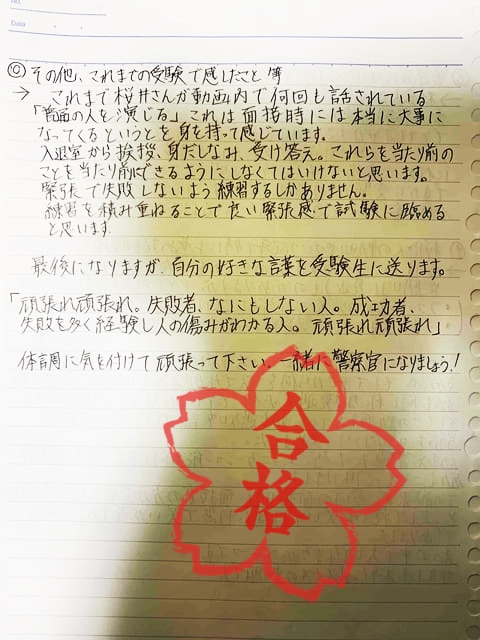 No.
Date
© その他、これまでの受験で感じたこと等
→ これまで桜井さんが動画内で何回も話されている
「普通の人を演じる」これは面接時には本当に大事に
なってくるというとを身を持って感じています。
入退室から挨拶、身だしなみ、受け答え。これらを当たり前の
ことを当たり前にできるようにしなくてはいけないと思います。
緊張で失敗しないよう練習するしかありません。
練習を積み重ねることで良い緊張感で試験に臨める
と思います
最後になりますが、自分の好きな言葉を受験生に送ります。
「頑張れ頑張れ。失敗者、なにもしない人。成功者、
失敗を多く経験し人の傷みがわかる人。頑張れ頑張れ」
体調に気を付けて頑張って下さい。一緒に警察官になりましょう!
合格